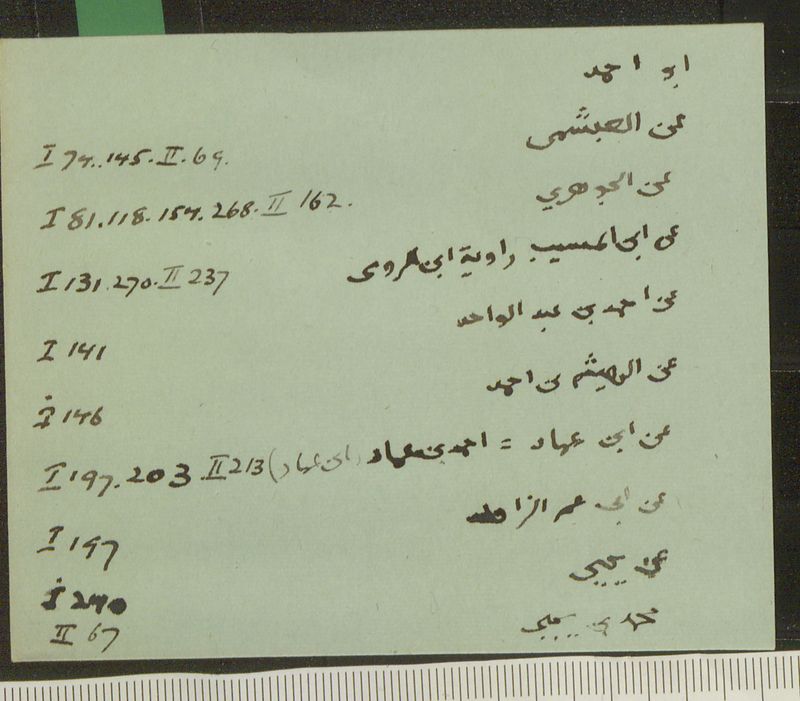 ابو احمد
عن العبشمى
I 74. 145. II. 69.
عن الجوهري
I 81. 118. 154. 268. II 162.
عن ابن المسيب راوية ابن الرومى
I 131. 270. II 237
عن احمد بن عبد الواحد
I 141
عن الهيثم بن احمد
I 146
عن ابن عمار = احمد بن عمار (ابن عمار)
I 197. 203 II 213
عن ابى عمر الزاهد
I 197
عن يحيى
I 240
محمد بن يحيى
II 67